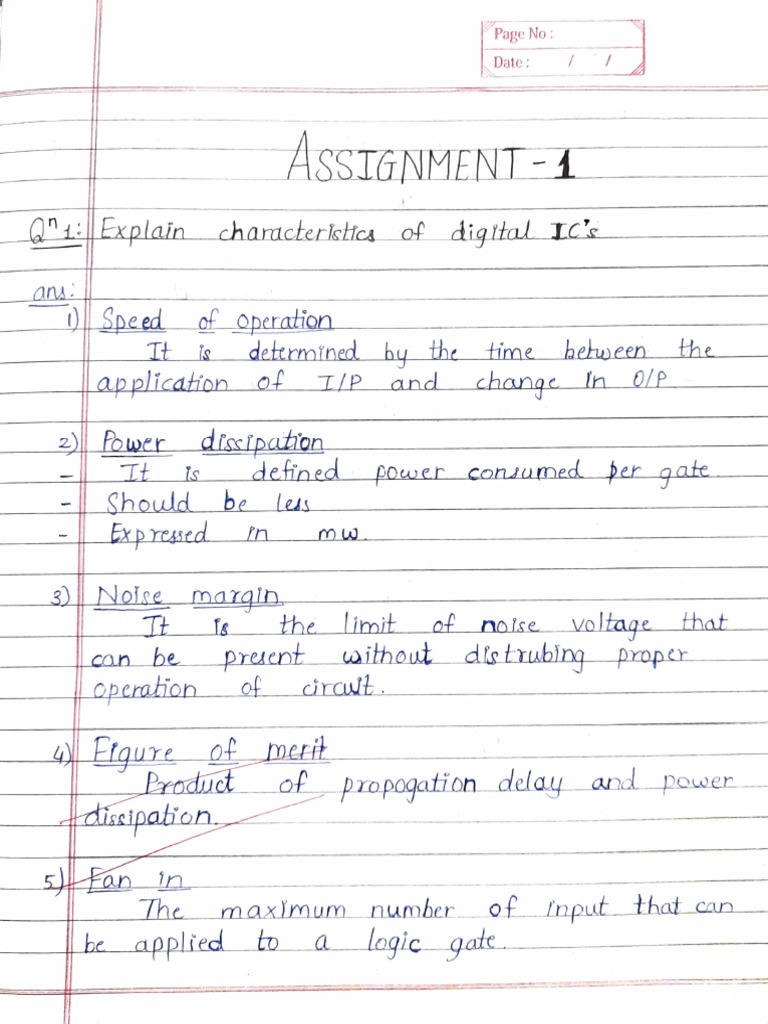 Page No :
Date : / /
ASSIGNMENT - 1
Qn 1: Explain characteristics of digital IC's
ans:
1) Speed of operation
It is determined by the time between the
application of I/P and change in O/P
2) Power dissipation
- It is defined power consumed per gate.
- Should be less
- Expressed in mw.
3) Noise margin
It is the limit of noise voltage that
can be present without distrubing proper
operation of circuit.
4) Figure of merit
Product of propogation delay and power
dissipation.
5) Fan in
The maximum number of input that can
be applied to a logic gate.